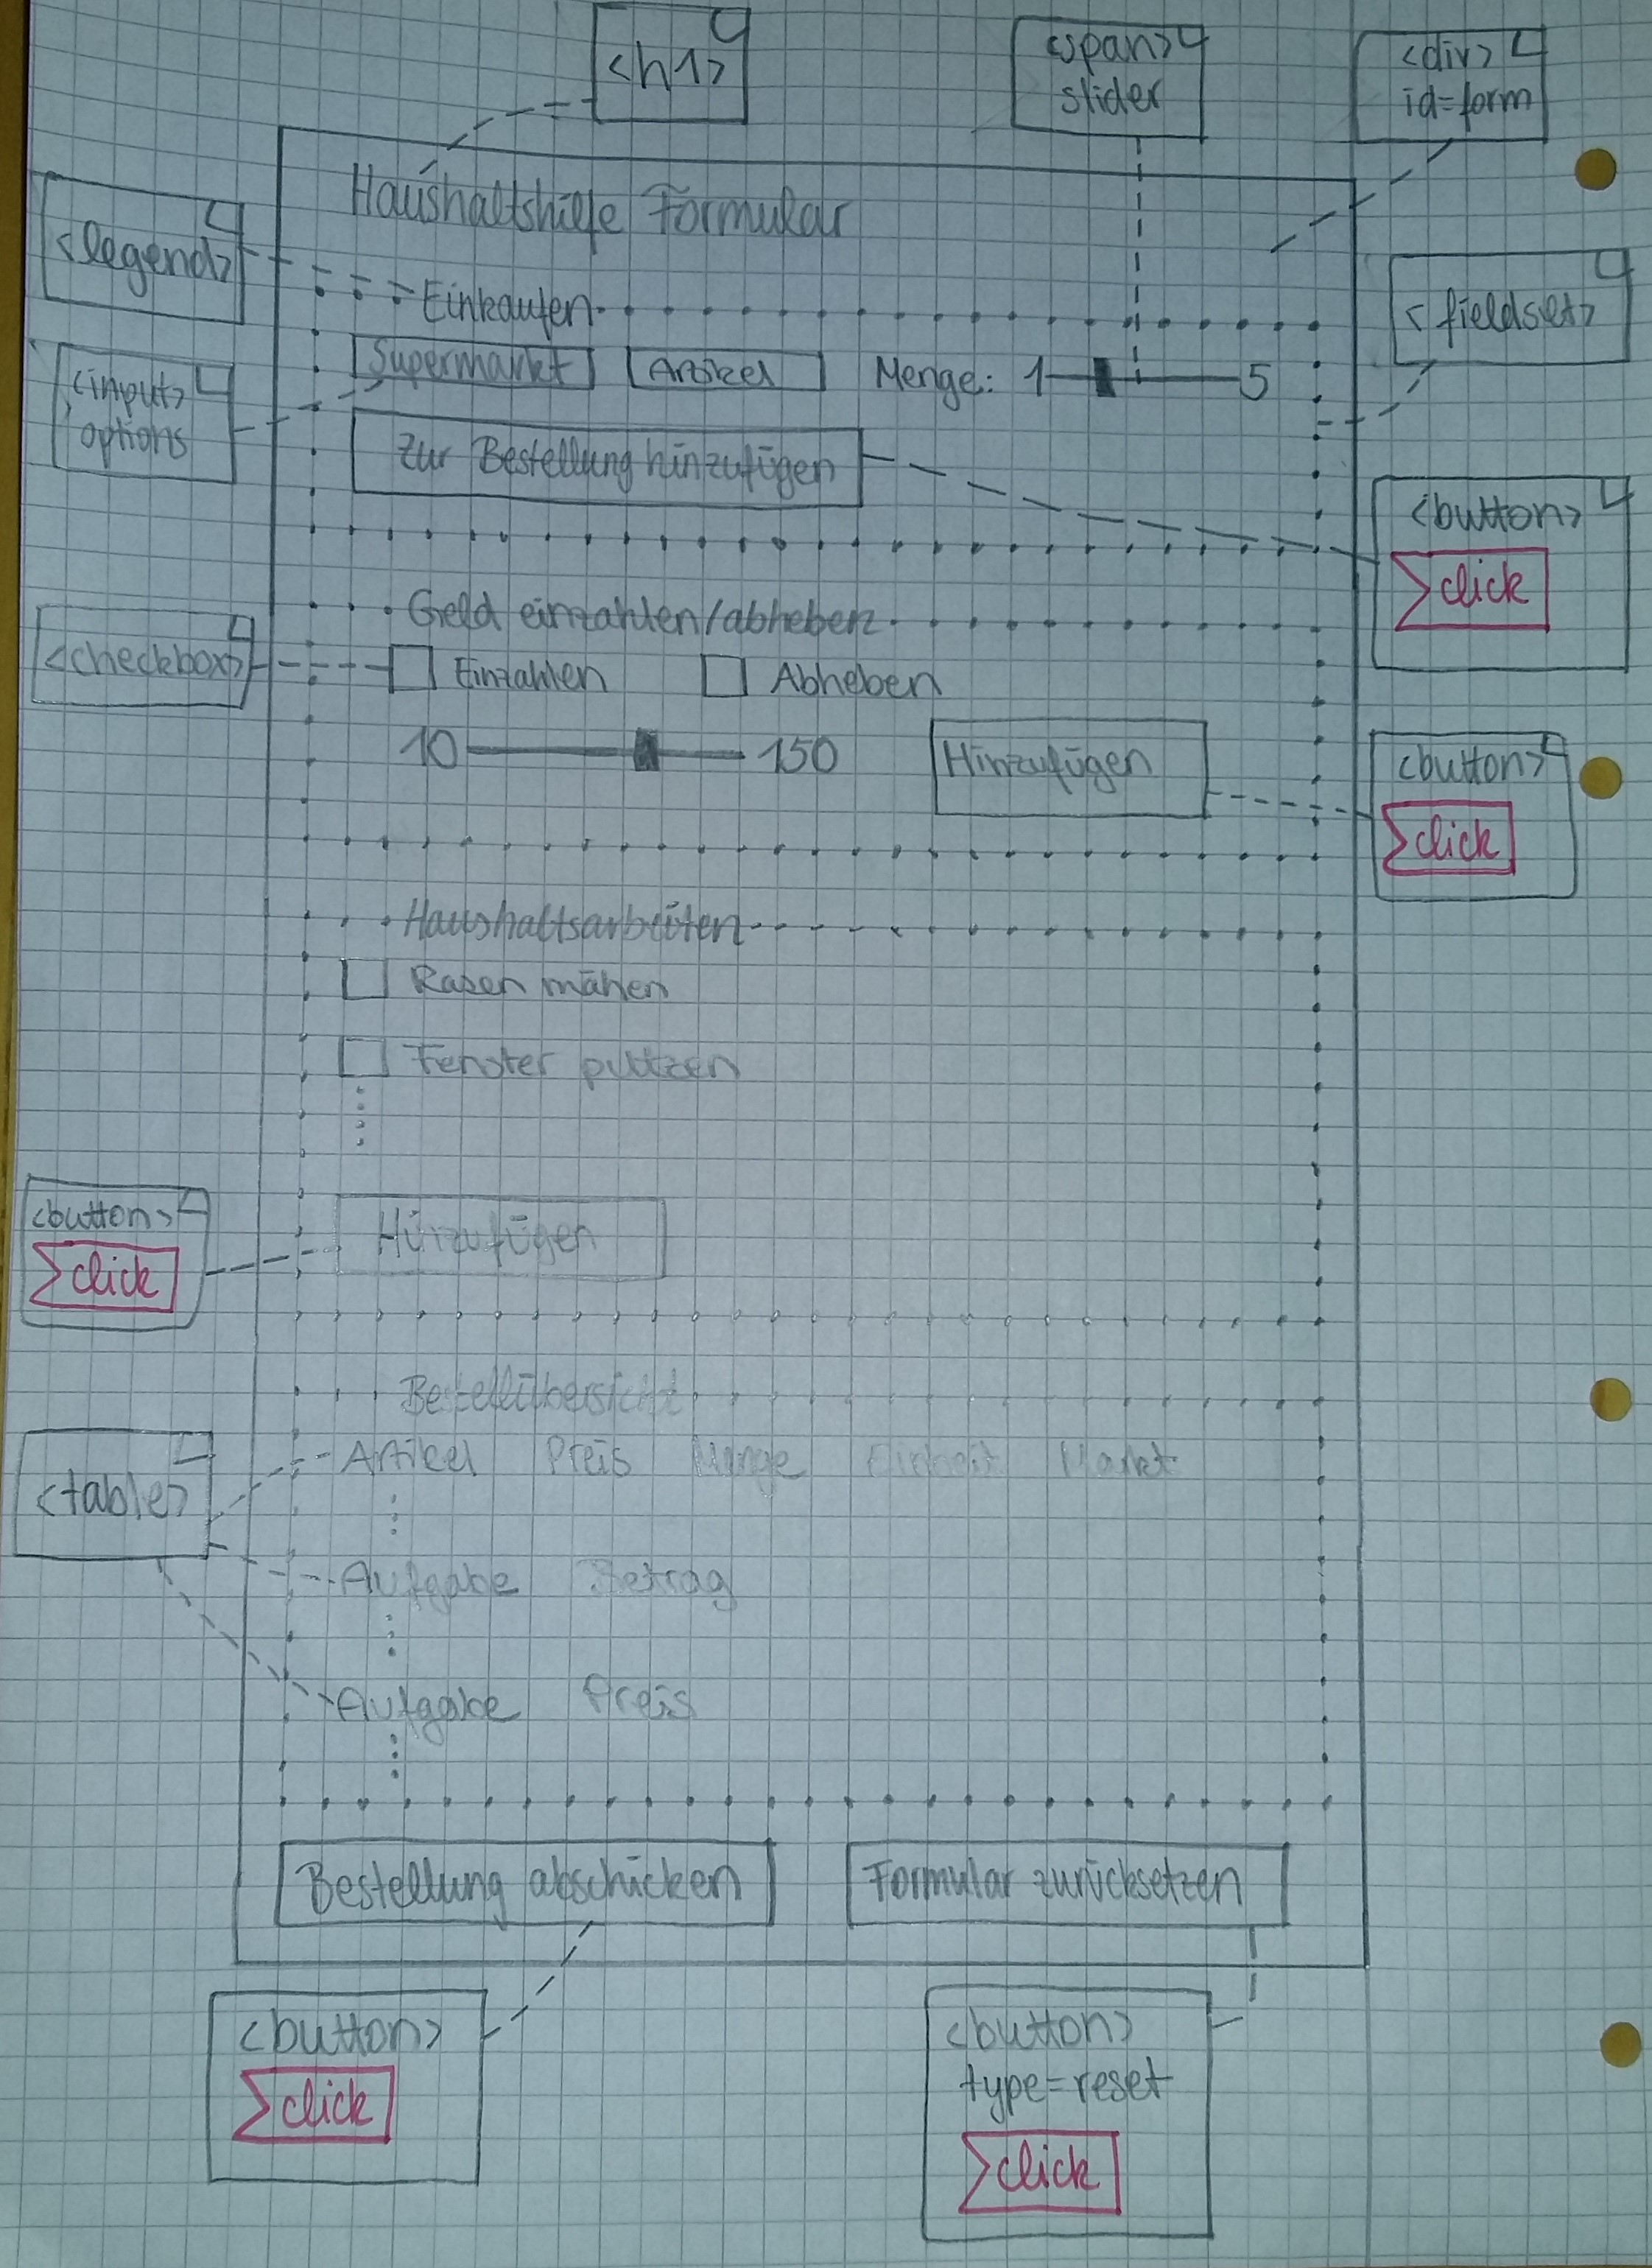 <h1>
<span>
slider
<div>
id=form
Haushaltshilfe Formular
<legend>
Einkaufen
<fieldset>
<input>
options
Supermarkt Artikel Menge: 1 5
Zur Bestellung hinzufügen
<button>
click
Geld einzahlen/abheben
<checkbox>
Einzahlen Abheben
10 150 Hinzufügen
<button>
click
Haushaltsarbeiten
Rasen mähen
Fenster puttzen
<button>
click
Hinzufügen
Bestellübersicht
Artikel Preis Menge Einheit Markt
<table>
Aufgabe Betrag
Aufgabe Preis
Bestellung abschicken Formular zurücksetzen
<button>
click
<button>
type=reset
click